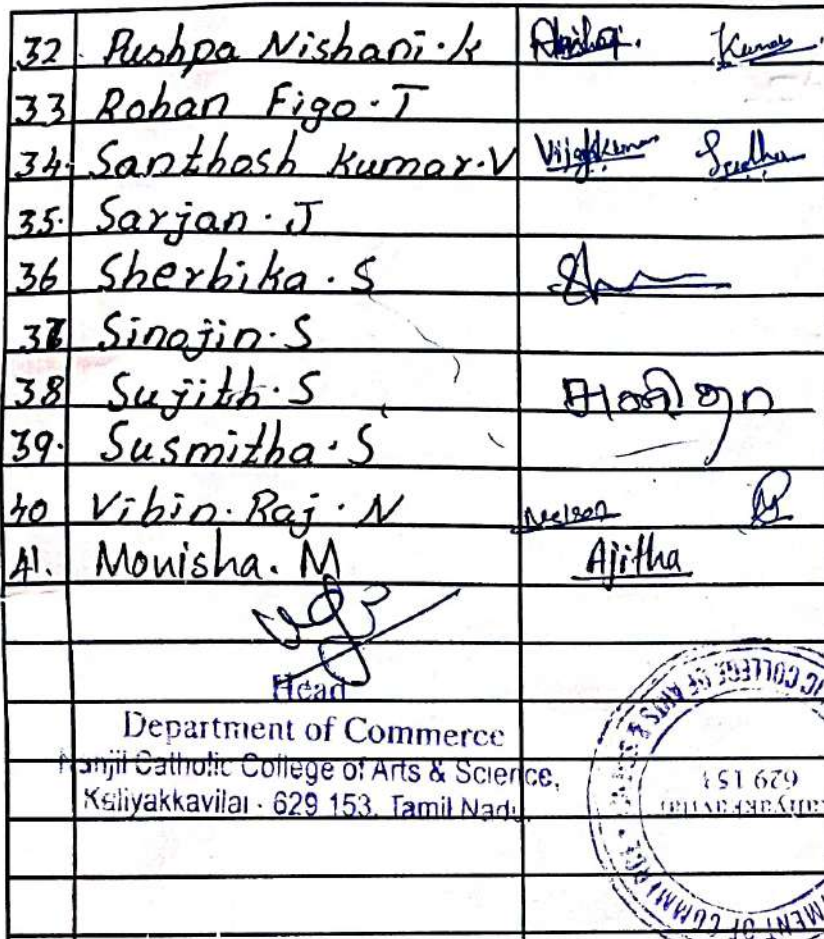 32. Pushpa Nishani.k Kumar.
33 Rohan Figo.T
34. Santhosh Kumar.V Vijaykumar
35. Sarjan.J
36 Sherbika.S
37 Sinojin.S
38 Sujith.S
39. Susmitha.S
40 Vibin.Raj.N Nelson
41. Monisha.M Ajitha
Head
Department of Commerce
Nanjil Catholic College of Arts & Science,
Kaliyakkavilai - 629 153. Tamil Nadu
IC COLLEGE OF ARTS &
629 153